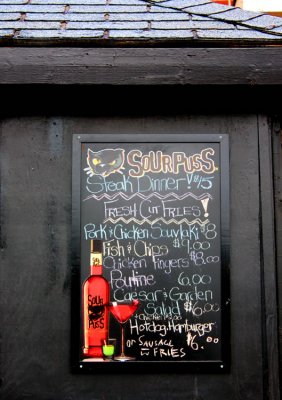 SOURPUSS
Steak Dinner! $15
FRESH Cut FRIES!
Pork & Chicken Souvlaki $8
Fish & Chips $9.00
Chicken Fingers $8.00
Poutine 6.00
Caesar & Garden
Salad $6.00
Chicken $3.00
Hotdog, Hamburger
or SAUSAGE $6.00
w FRIES
SOUR
PUSS